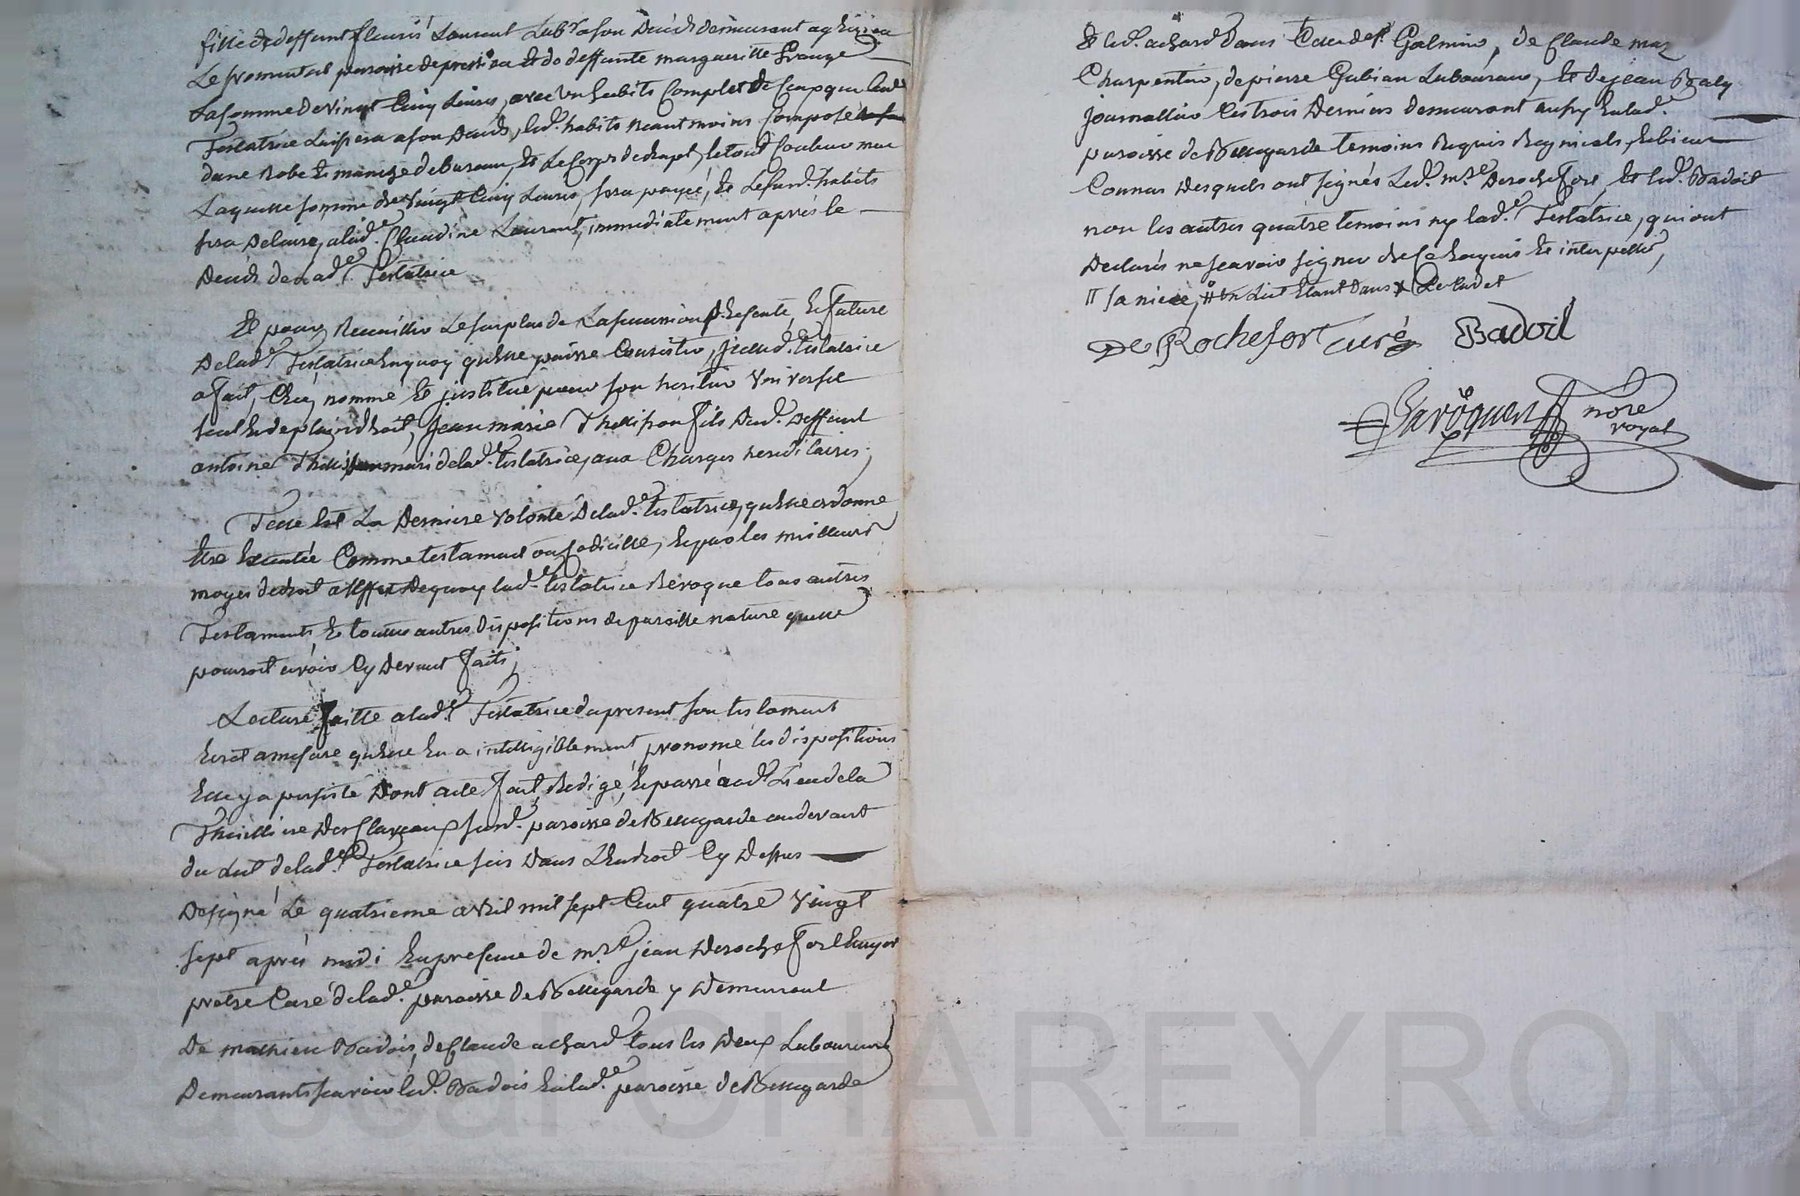 fille de deffunt fleuris Laurent Lab.r a son Deces demeurant au
Le fromental paroisse de et de deffunte marguerite Grange
La somme de vingt Cinq Livres, avec un habits Complet de Ceux que lad.e
Testatrice Laissera a son Deces, led. habits neantmoins Composé
dune Robe et manige de bureau, et Le Corps de drapt, le tout Couleur
Laquelle somme de Vingt Cinq Livres, sera payée, et Le susd. habits
sera Delivré, a lad.e Claudine Laurent, immediatement après le
Deces de lad.e Testatrice
Et pour Recueillir Le surplus de La succession presente, et future
De lad.e Testatrice en quoy qu'elle puisse Consister, icelle d. testatrice
a fait, Créé, nommé et institué pour son heritier Universel
seul et de plein droit, Jean marie Thellisson fils dud. Deffunt
antoine Thellisson mari de lad.e testatrice, aux Charges hereditaires;
Telle est La Derniere volonté De lad.e testatrice, qu'elle ordonne
Etre Executée Comme testament ou Codicille, et par les meilleurs
moyes de droit a l'effet De quoy lad.e testatrice Revoque tous autres
Testaments et toutes autres dispositions de pareille nature quelle
pourroit avoir Cy Devant faits;
Lecture faitte a lad.e Testatrice du present son testament
et a mesure qu'elle en a intelligiblement pronomé les dispositions
Elle y a persisté Dont acte fait, Redigé, et passé aud. Lieu de la
Thuilliere Des susd. paroisse de Bellegarde au devant
du Lit de lad.e Testatrice sis Dans L'Endroit Cy Dessus
Designé Le quatrieme avril mil sept Cent quatre Vingt
sept après midi En presence de m.re jean De rochefort
pretre Curé de lad.e paroisse de Bellegarde y Demeurant
De mathieu Badois, de Claude achard tous les Deux Laboureurs
Demeurants scavoir led. Badois En lad.e paroisse de Bellegarde
Et led. achard dans Celle de S.t Galmier, de Claude
Charpentier, de pierre Gubian Laboureur, et De jean Baly
journallier Les trois Derniers demeurant aussy En lad.e
paroisse de Bellegarde temoins Requis
Connus Desquels ont signés Led. m.re De rochefort, et led. Badoit
non les autres quatre temoins ny lad.e Testatrice, qui ont
Declarés ne scavoir signer de Ce Enquis et interpellés,
sa niece, un Lit Etant Dans
De Rochefort curé Badoil
nore
royal